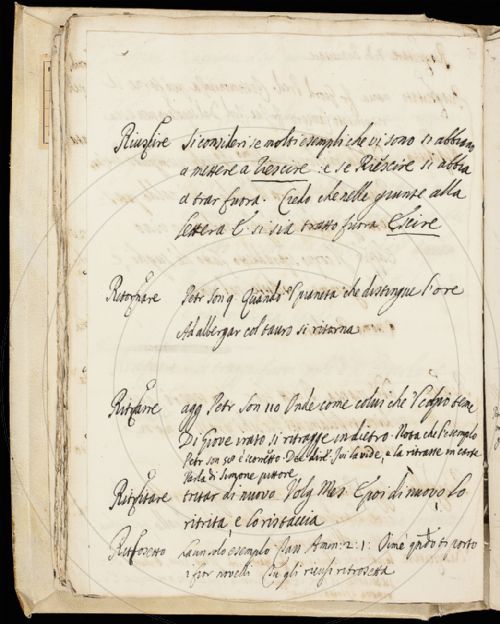 Riuscire Si consideri se molti esempli che vi sono si abbiano
a mettere a Uescire: e se Riescire si abbia
a trar fuora. Credo che nelle giunte alla
lettera E. si sia tratto fuora Escire
Ritornare Petr son 9 Quando 'l pianeta che distingue l'ore
Ad albergar col tauro si ritorna
Ritrarre agg. Petr son 110 Onde come colui che 'l colpo teme
Di Giove irato si ritragge indietro. Nota che l'esemplo
Petr son è scorretto. Dee dire: Ivi la vide, e la ritrasse in carte
Parla di Simone pittore
Ritritare tritar di nuovo Volg Mes E poi di nuovo lo
ritrita, e lo ristaccia
Ritrosetto esemplo Amm: 2: 1: ti porto
i fior novelli gli ricusi ritrosetta